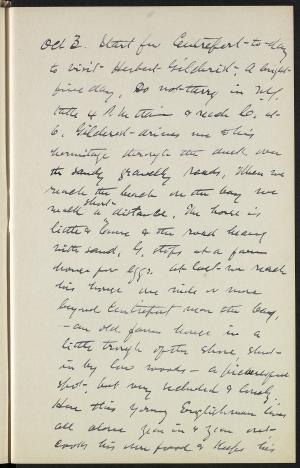 Oct 3. Start for Centreport to-day
to visit Herbert Gilchrist. A bright
fine day. Do nothing in N.Y.
take 4 P.M. train & reach C. at
6. Gilchrist drives me to his
hermitage through the dusk over
the sandy gravelly roads. When we
reach the beach on the bay we
walk a short distance. The horse is
little & lame & the road heavy
with sand. G. stops at a farm
house for eggs. At last we reach
his house one mile or more
beyond Centreport near the bay,
— an old farm house in a
little trough of the shore, shut
in by low woods — a picturesque
spot, but very secluded & lonely.
Here this young Englishman lives
all alone year in & year out
cooks his own food & keeps his